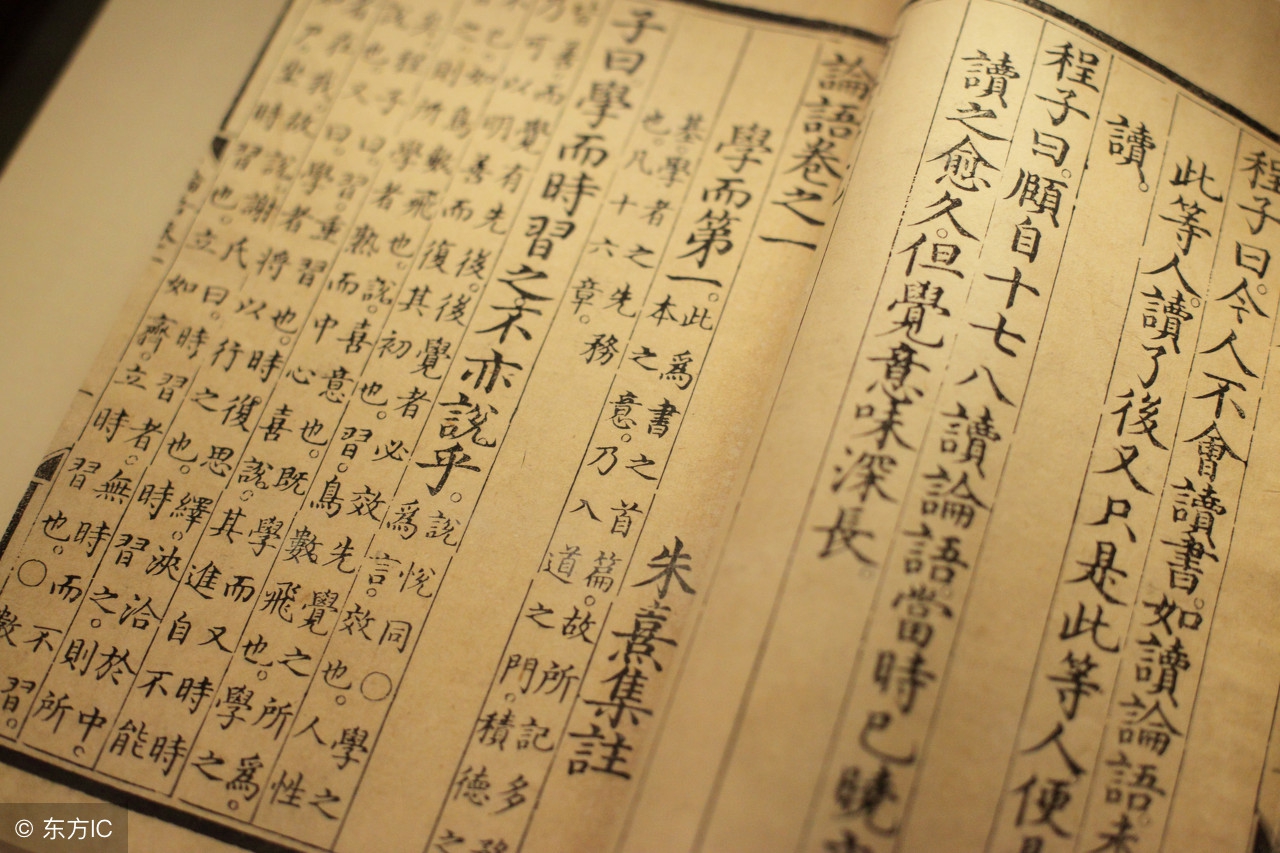 程子曰。今人不會讀書。如讀論語。未
此等人。讀了後又只是此等人。便是
讀。
程子曰。頤自十七八讀論語。當時已曉
讀之愈久。但覺意味深長。
論語卷之一
朱熹集註
學而第一。此為書之首篇。故所記多務
本之意。乃入道之門。積德之
基。學者之先務
也。凡十六章。
子曰學而時習之。不亦說乎。說悅同○學之
為言。效也。人性
皆善。而覺有先後。後覺者必效先覺之所為。
乃可以明善而復其初也。習。鳥數飛也。學之
不已。如鳥數飛也。說。喜意也。既學而又時
之。則所學者熟。而中心喜說。其進自不能
已矣。程子曰。習重習也。時復思繹。浹洽於中。
則說也。又曰。學者將以行之也。時習之。則所
在我。故說。謝氏曰。時習者。無時而不習。
坐時習也。立如齊。立時習也。○